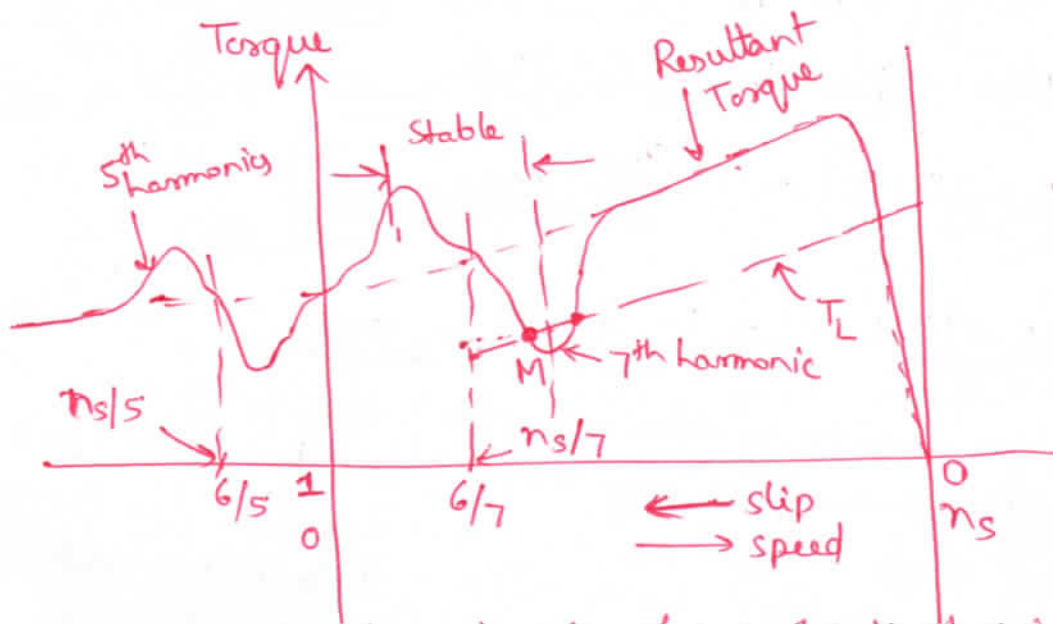 Torque
Resultant
Torque
Stable
5th harmonics
TL
M
7th harmonic
ns/5
ns/7
6/5
1
6/7
0
slip
0
speed
ns